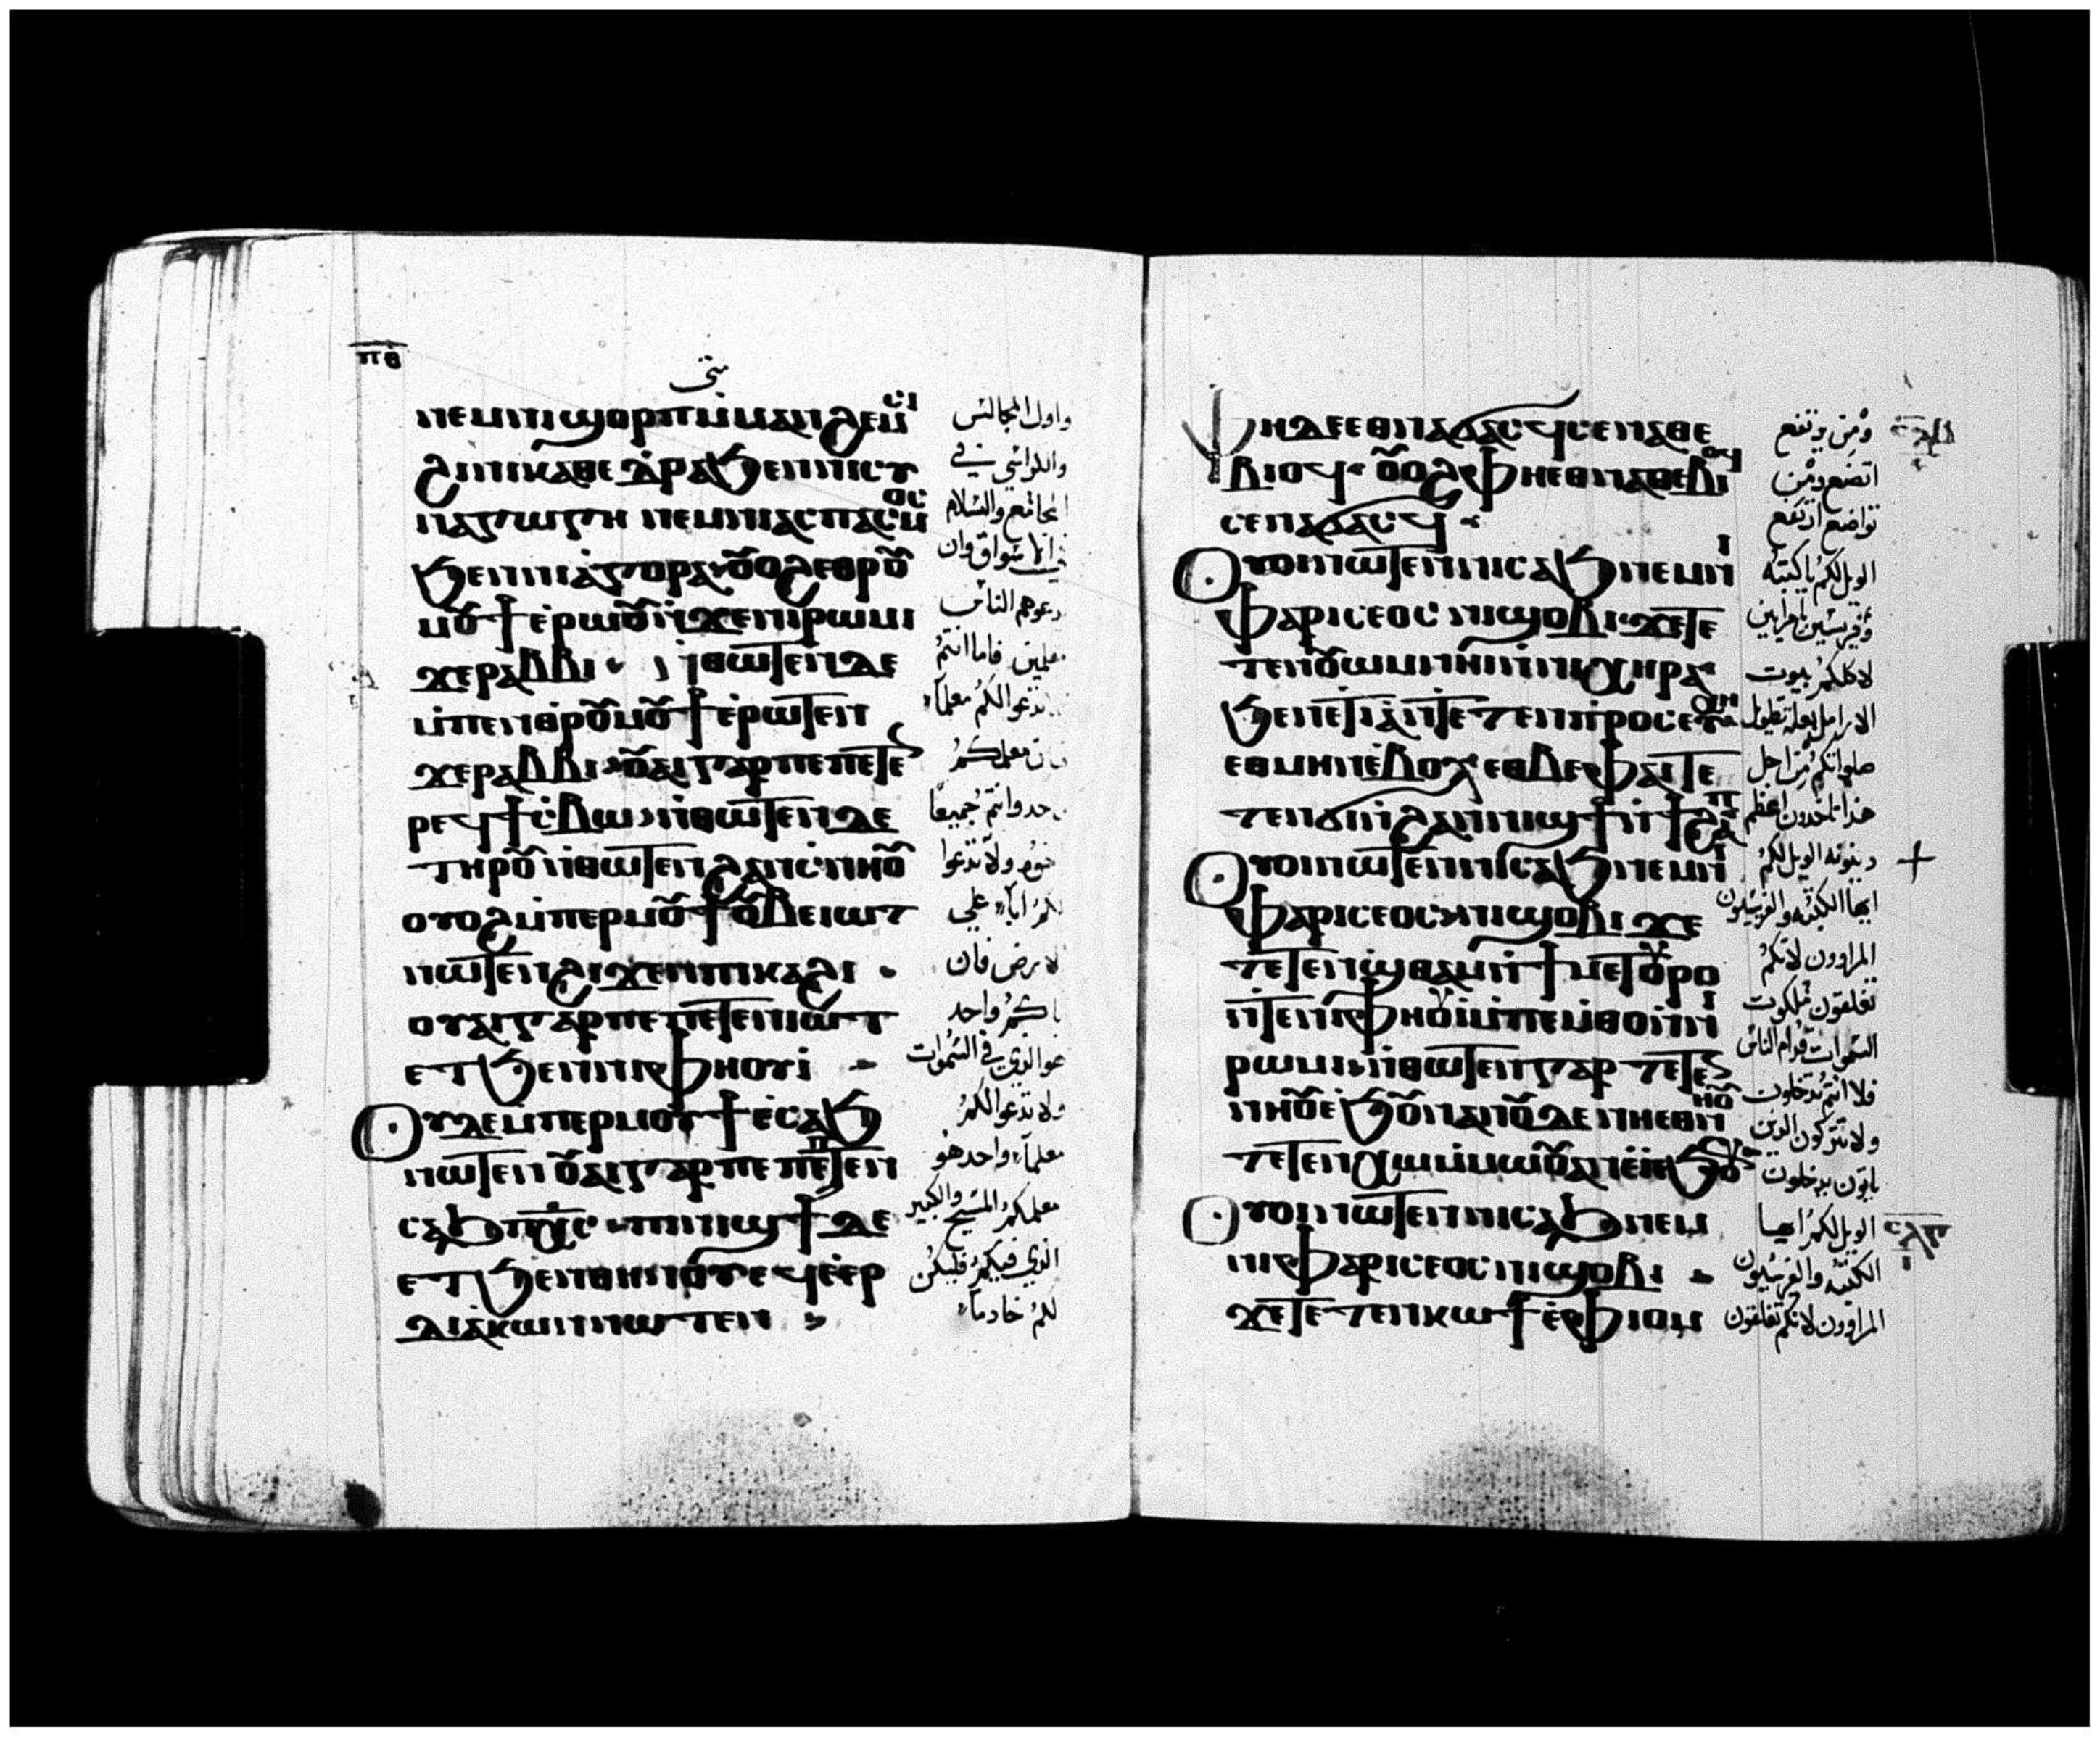 ⲡⲑ
متى
ⲛⲉⲙⲛⲓϣⲟⲣⲡⲙ̀ⲙⲁⲛϩⲉⲙⲥⲓ
ϩⲓⲛⲓⲕⲁⲑⲉⲇⲣⲁϧⲉⲛⲛⲓⲥⲩ
ⲛⲁⲅⲱⲅⲏ ⲛⲉⲙⲛⲓⲁⲥⲡⲁⲥⲙⲟⲥ
ϧⲉⲛⲛⲓⲁⲅⲟⲣⲁ·ⲟⲩⲟϩⲉⲑⲣⲟⲩ
ⲙⲟⲩϯⲉ̀ⲣⲱⲟⲩⲛ̀ϫⲉⲛⲓⲣⲱⲙⲓ
ϫⲉⲣⲁⲃⲃⲓ · ⲛ̀ⲑⲱⲧⲉⲛⲇⲉ
ⲙ̀ⲡⲉⲛⲑⲣⲟⲩⲙⲟⲩϯⲉ̀ⲣⲱⲧⲉⲛ
ϫⲉⲣⲁⲃⲃⲓ·ⲟⲩⲁⲓⲅⲁⲣⲡⲉⲡⲉⲧⲉ
ⲣⲉϥϯⲥ̀ⲃⲱ·ⲛ̀ⲑⲱⲧⲉⲛⲇⲉ
ⲧⲏⲣⲟⲩⲛ̀ⲑⲱⲧⲉⲛϩⲁⲛⲥ̀ⲛⲏⲟⲩ
ⲟⲩⲟϩⲙ̀ⲡⲉⲣⲙⲟⲩϯⲟⲩⲃⲉⲓⲱⲧ
ⲛⲱⲧⲉⲛϩⲓϫⲉⲛⲡⲓⲕⲁϩⲓ ·
ⲟⲩⲁⲓⲅⲁⲣⲡⲉⲡⲉⲧⲉⲛⲓⲱⲧ
ⲉⲧϧⲉⲛⲛⲓⲫⲏⲟⲩⲓ ·
ⲟⲩⲇⲉⲙ̀ⲡⲉⲣⲙⲟⲩϯⲉ̀ⲥⲁϧ
ⲛⲱⲧⲉⲛ ⲟⲩⲁⲓⲅⲁⲣⲡⲉⲡⲉⲧⲉⲛ
ⲥⲁϧⲡⲭ̅ⲥ̅·ⲡⲓⲛⲓϣϯⲇⲉ
ⲉⲧϧⲉⲛⲑⲏⲛⲟⲩⲉϥⲉ̀ⲉⲣ
ⲇⲓⲁⲕⲱⲛⲛⲱⲧⲉⲛ ·
واول المجالس
والكراسي في
المجامع والسلام
في الاسواق وان
يدعوهم الناس
معلمين فاما انتم
تدعوا لكم معلماً
لان معلمكم
واحد وانتم جميعا
اخوه ولا تدعوا
لكم اباً علي
الارض فان
اباكم واحد
هو الذي في السموات
ولا تدعوا لكم
معلماً واحد هو
معلمكم المسيح والكبير
الذي فيكم فليكن
لكم خادماً
ⲫⲏⲇⲉⲉⲑⲛⲁϭⲁⲥϥⲥⲉⲛⲁⲑⲉ
ⲃⲓⲟϥ·ⲟⲩⲟϩⲫⲏⲉⲑⲛⲁⲑⲉⲃⲓⲟϥ
ⲥⲉⲛⲁϭⲁⲥϥ ·
ⲟⲩⲟⲓⲛⲱⲧⲉⲛⲛⲓⲥⲁϧⲛⲉⲙⲛⲓ
ⲫⲁⲣⲓⲥⲉⲟⲥ ⲛⲓϣⲟⲃⲓ·ϫⲉⲧⲉ
ⲧⲉⲛⲟⲩⲱⲙⲛ̀ⲛⲓⲏⲓⲛ̀ⲧⲉⲛⲓⲭⲏⲣⲁ
ϧⲉⲛⲉⲧⲓⲁⲛ̀ⲧⲉⲧⲉⲛⲡⲣⲟⲥⲉⲩⲭⲏ
ⲉⲑⲙⲏⲛⲉ̀ⲃⲟⲗ ⲉⲑⲃⲉⲫⲁⲓⲧⲉ
ⲧⲉⲛϭⲓⲛ̀ϩⲁⲛⲛⲓϣϯⲛ̀ϯϩⲁⲡ
ⲟⲩⲟⲓⲛⲱⲧⲉⲛⲛⲓⲥⲁϧⲛⲉⲙⲛⲓ
ⲫⲁⲣⲓⲥⲉⲟⲥ·ⲛⲓϣⲟⲃⲓ ϫⲉ
ⲧⲉⲧⲉⲛϣⲑⲁⲙⲛ̀ϯⲙⲉⲧⲟⲩⲣⲟ
ⲛ̀ⲧⲉⲛⲓⲫⲏⲟⲩⲓⲙ̀ⲡⲉⲙⲑⲟⲛ̀ⲛⲓ
ⲣⲱⲙⲓ·ⲛ̀ⲑⲱⲧⲉⲛⲅⲁⲣ ⲧⲉⲧⲉ
ⲛⲛⲏⲟⲩⲉϧⲟⲩⲛⲁⲛⲟⲩⲇⲉⲛⲏⲉⲑⲛⲏⲟⲩ
ⲧⲉⲧⲉⲛⲭⲱⲙ̀ⲙⲱⲟⲩⲁⲛⲉ̀ⲓ̀ⲉϧⲟⲩⲛ
ⲟⲩⲟⲓⲛⲱⲧⲉⲛⲛⲓⲥⲁϧⲛⲉⲙ
ⲛⲓⲫⲁⲣⲓⲥⲉⲟⲥⲛⲓϣⲟⲃⲓ ·
ϫⲉⲧⲉⲧⲉⲛⲕⲱϯⲉ̀ⲫⲓⲟⲙ
ومن يرتفع
اتضع ومن
تواضع ارتفع
الويل لكم يا كتبة
وفريسيين يا مرايين
لاكلكم بيوت
الارامل بعلة تطويل
صلواتكم من اجل
هذا تاخدون اعظم
دينونه الويل لكم
ايها الكتبه والفريسيون
المراوون لانكم
تغلقون ملكوت
السموات قدام الناس
فلا انتم تدخلون
ولا تتركون الذين
ياتون يدخلون
الويل لكم ايها
الكتبه والفريسيون
المراوون لانكم تغلقون